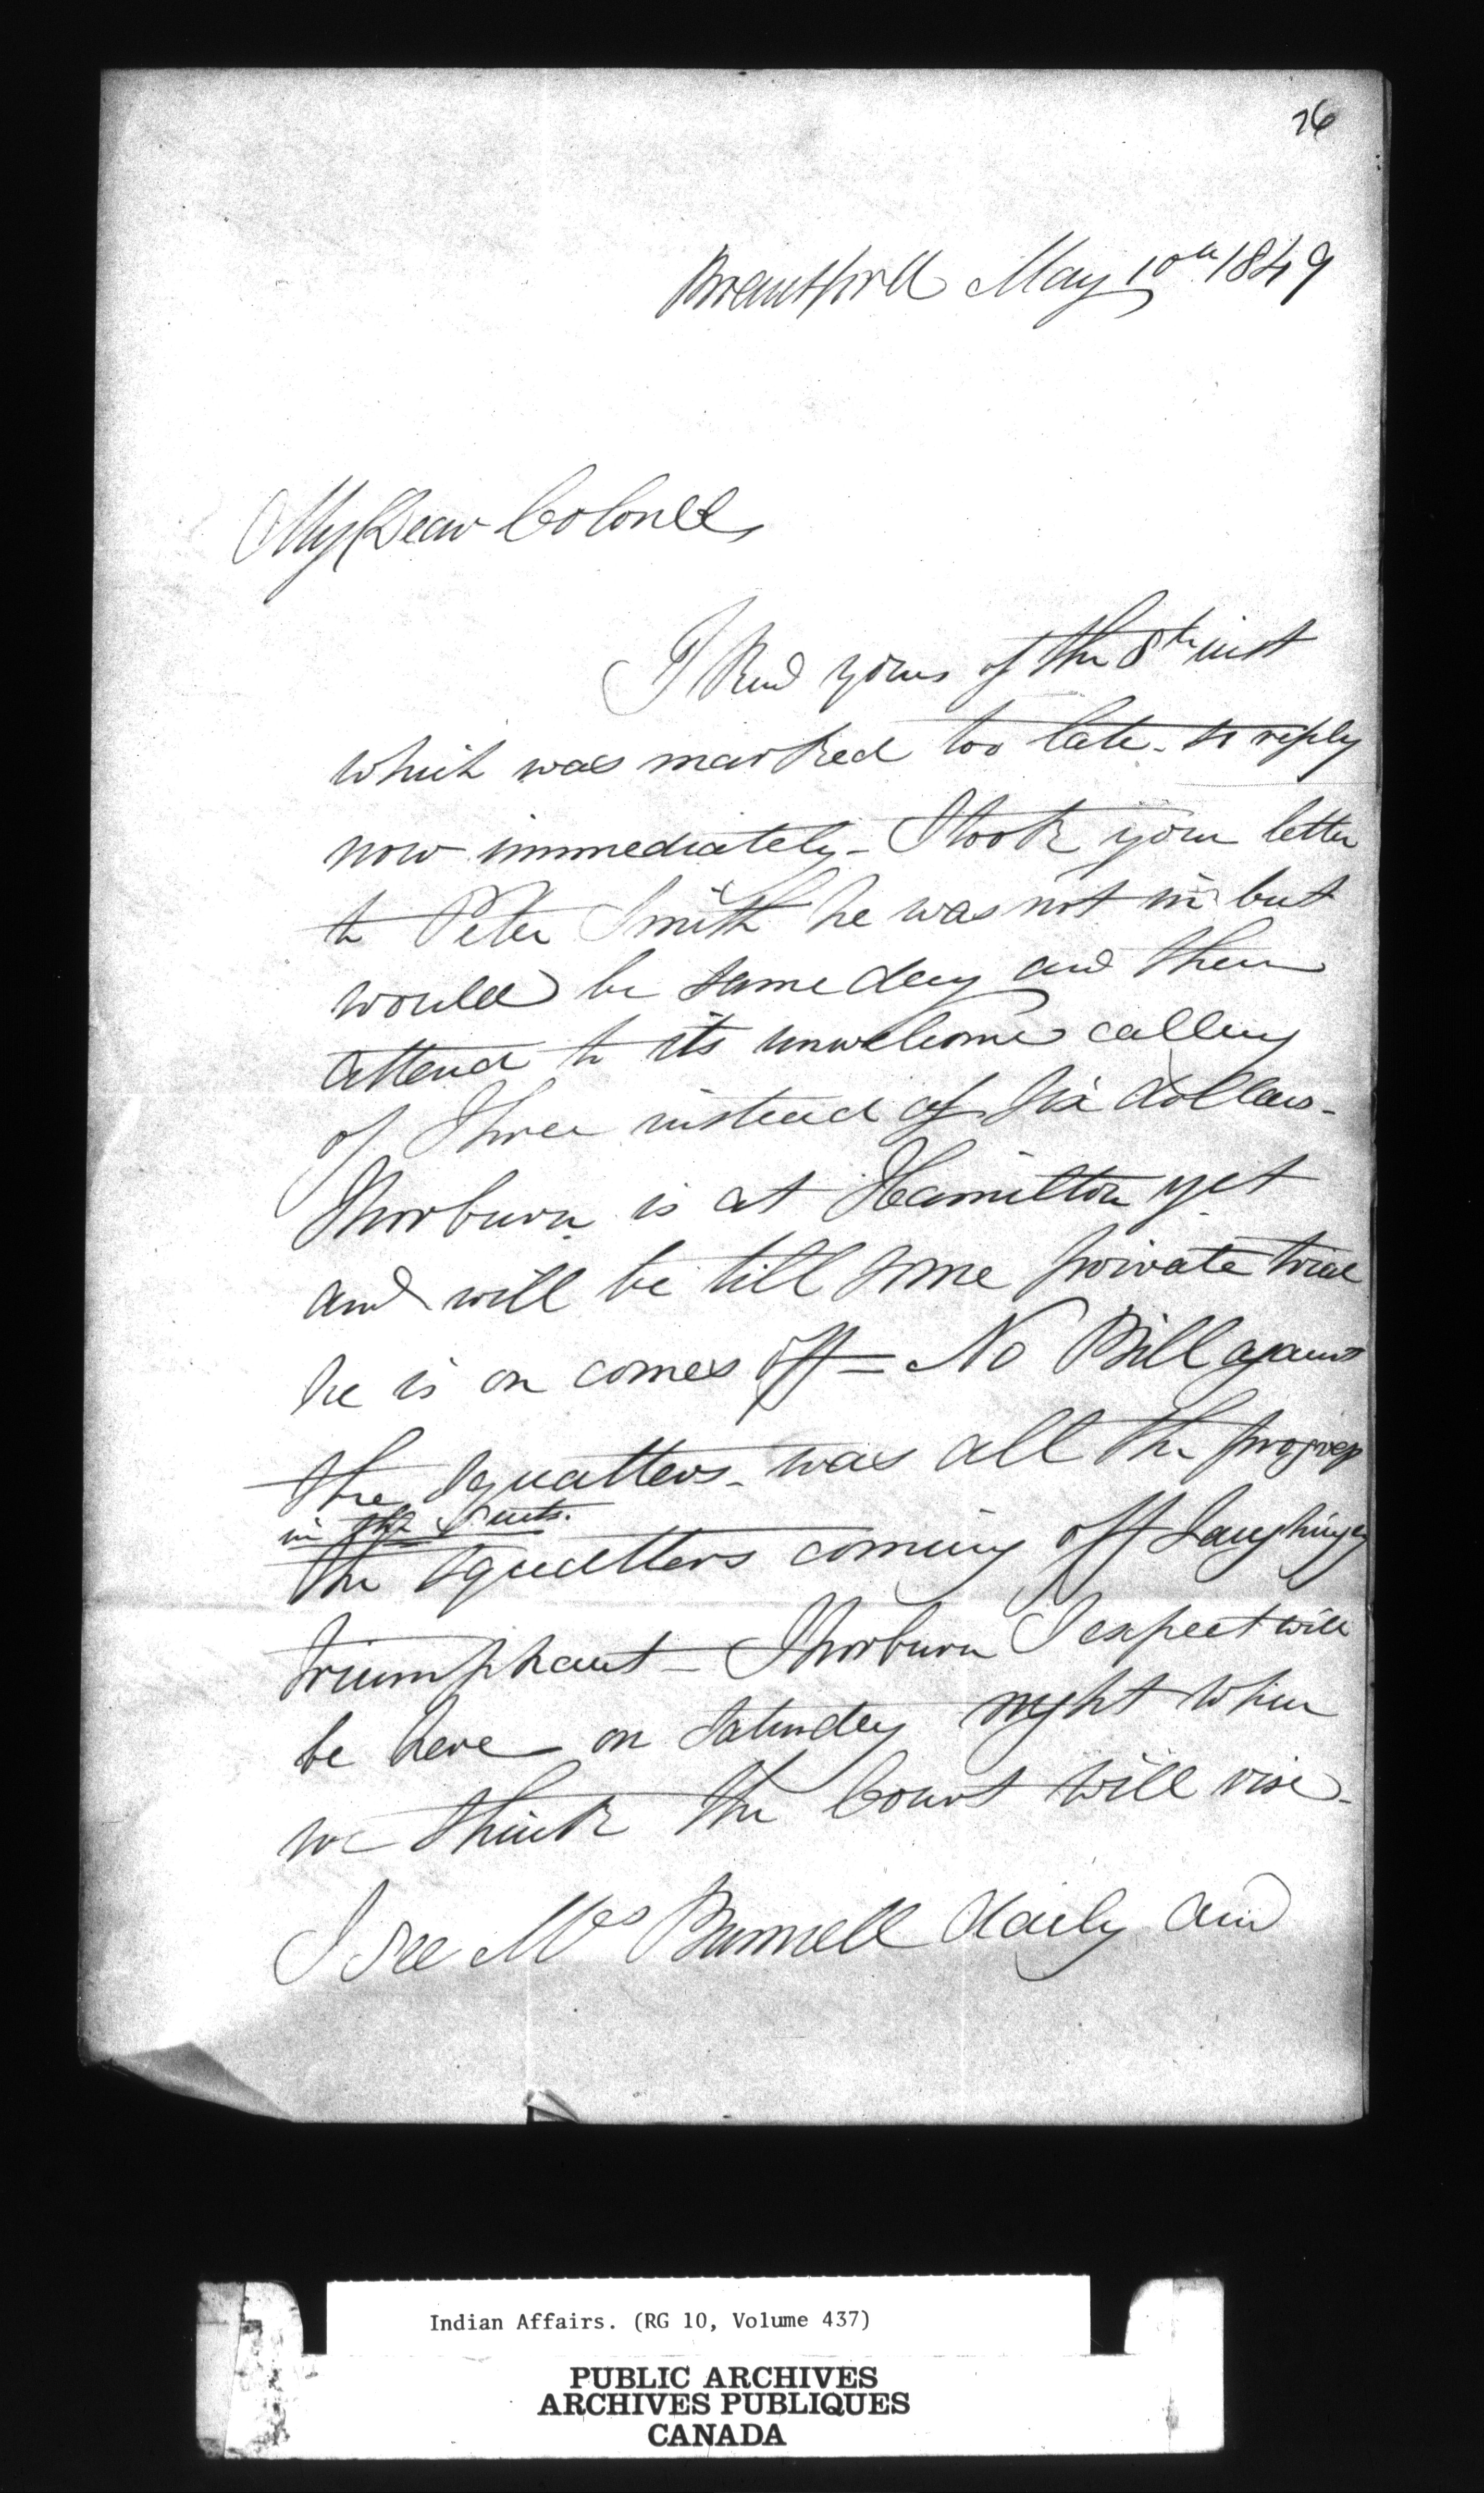 76
Brantford May 10th 1849
My Dear Colonel,
I Recd yours of the 8th inst
which was marked too late to reply
now immediately - I took your letter
to Peter Smith he was not in but
would be same day and then
attend to its unwelcome calling
of Three instead of Six dollars -
Thorburn is at Hamilton yet
and will be till some private trial
he is on comes off = No Bill against
the Squatters - was all the progress
in the
the Squatters coming off Laughing &
triumphant - Thorburn I expect will
be here on Saturday night when
we think the Court will rise -
I see Mrs Bunnell daily and
Indian Affairs. (RG 10, Volume 437)
PUBLIC ARCHIVES
ARCHIVES PUBLIQUES
CANADA